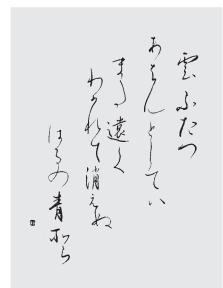 雲ふたつ
あはんとしては
また遠く
わかれて消えぬ
はるの青そら